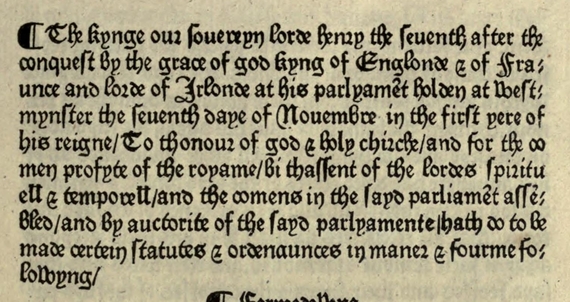 ¶ The kynge our souereyn lorde henry the seuenth after the
conquest by the grace of god kyng of Englonde & of Fra⸗
unce and lorde of Irlonde at his parlyamēt holden at west⸗
mynster the seuenth daye of Nouembre in the first yere of
his reigne/To thonour of god & holy chirche/and for the co
men profyte of the royame/bi thassent of the lordes spiritu
ell & temporell/and the comens in the sayd parliamēt assē⸗
bled/and by auctorite of the sayd parlyamente/hath do to be
made certein statutes & ordenaunces in maner & fourme fo⸗
lowyng/